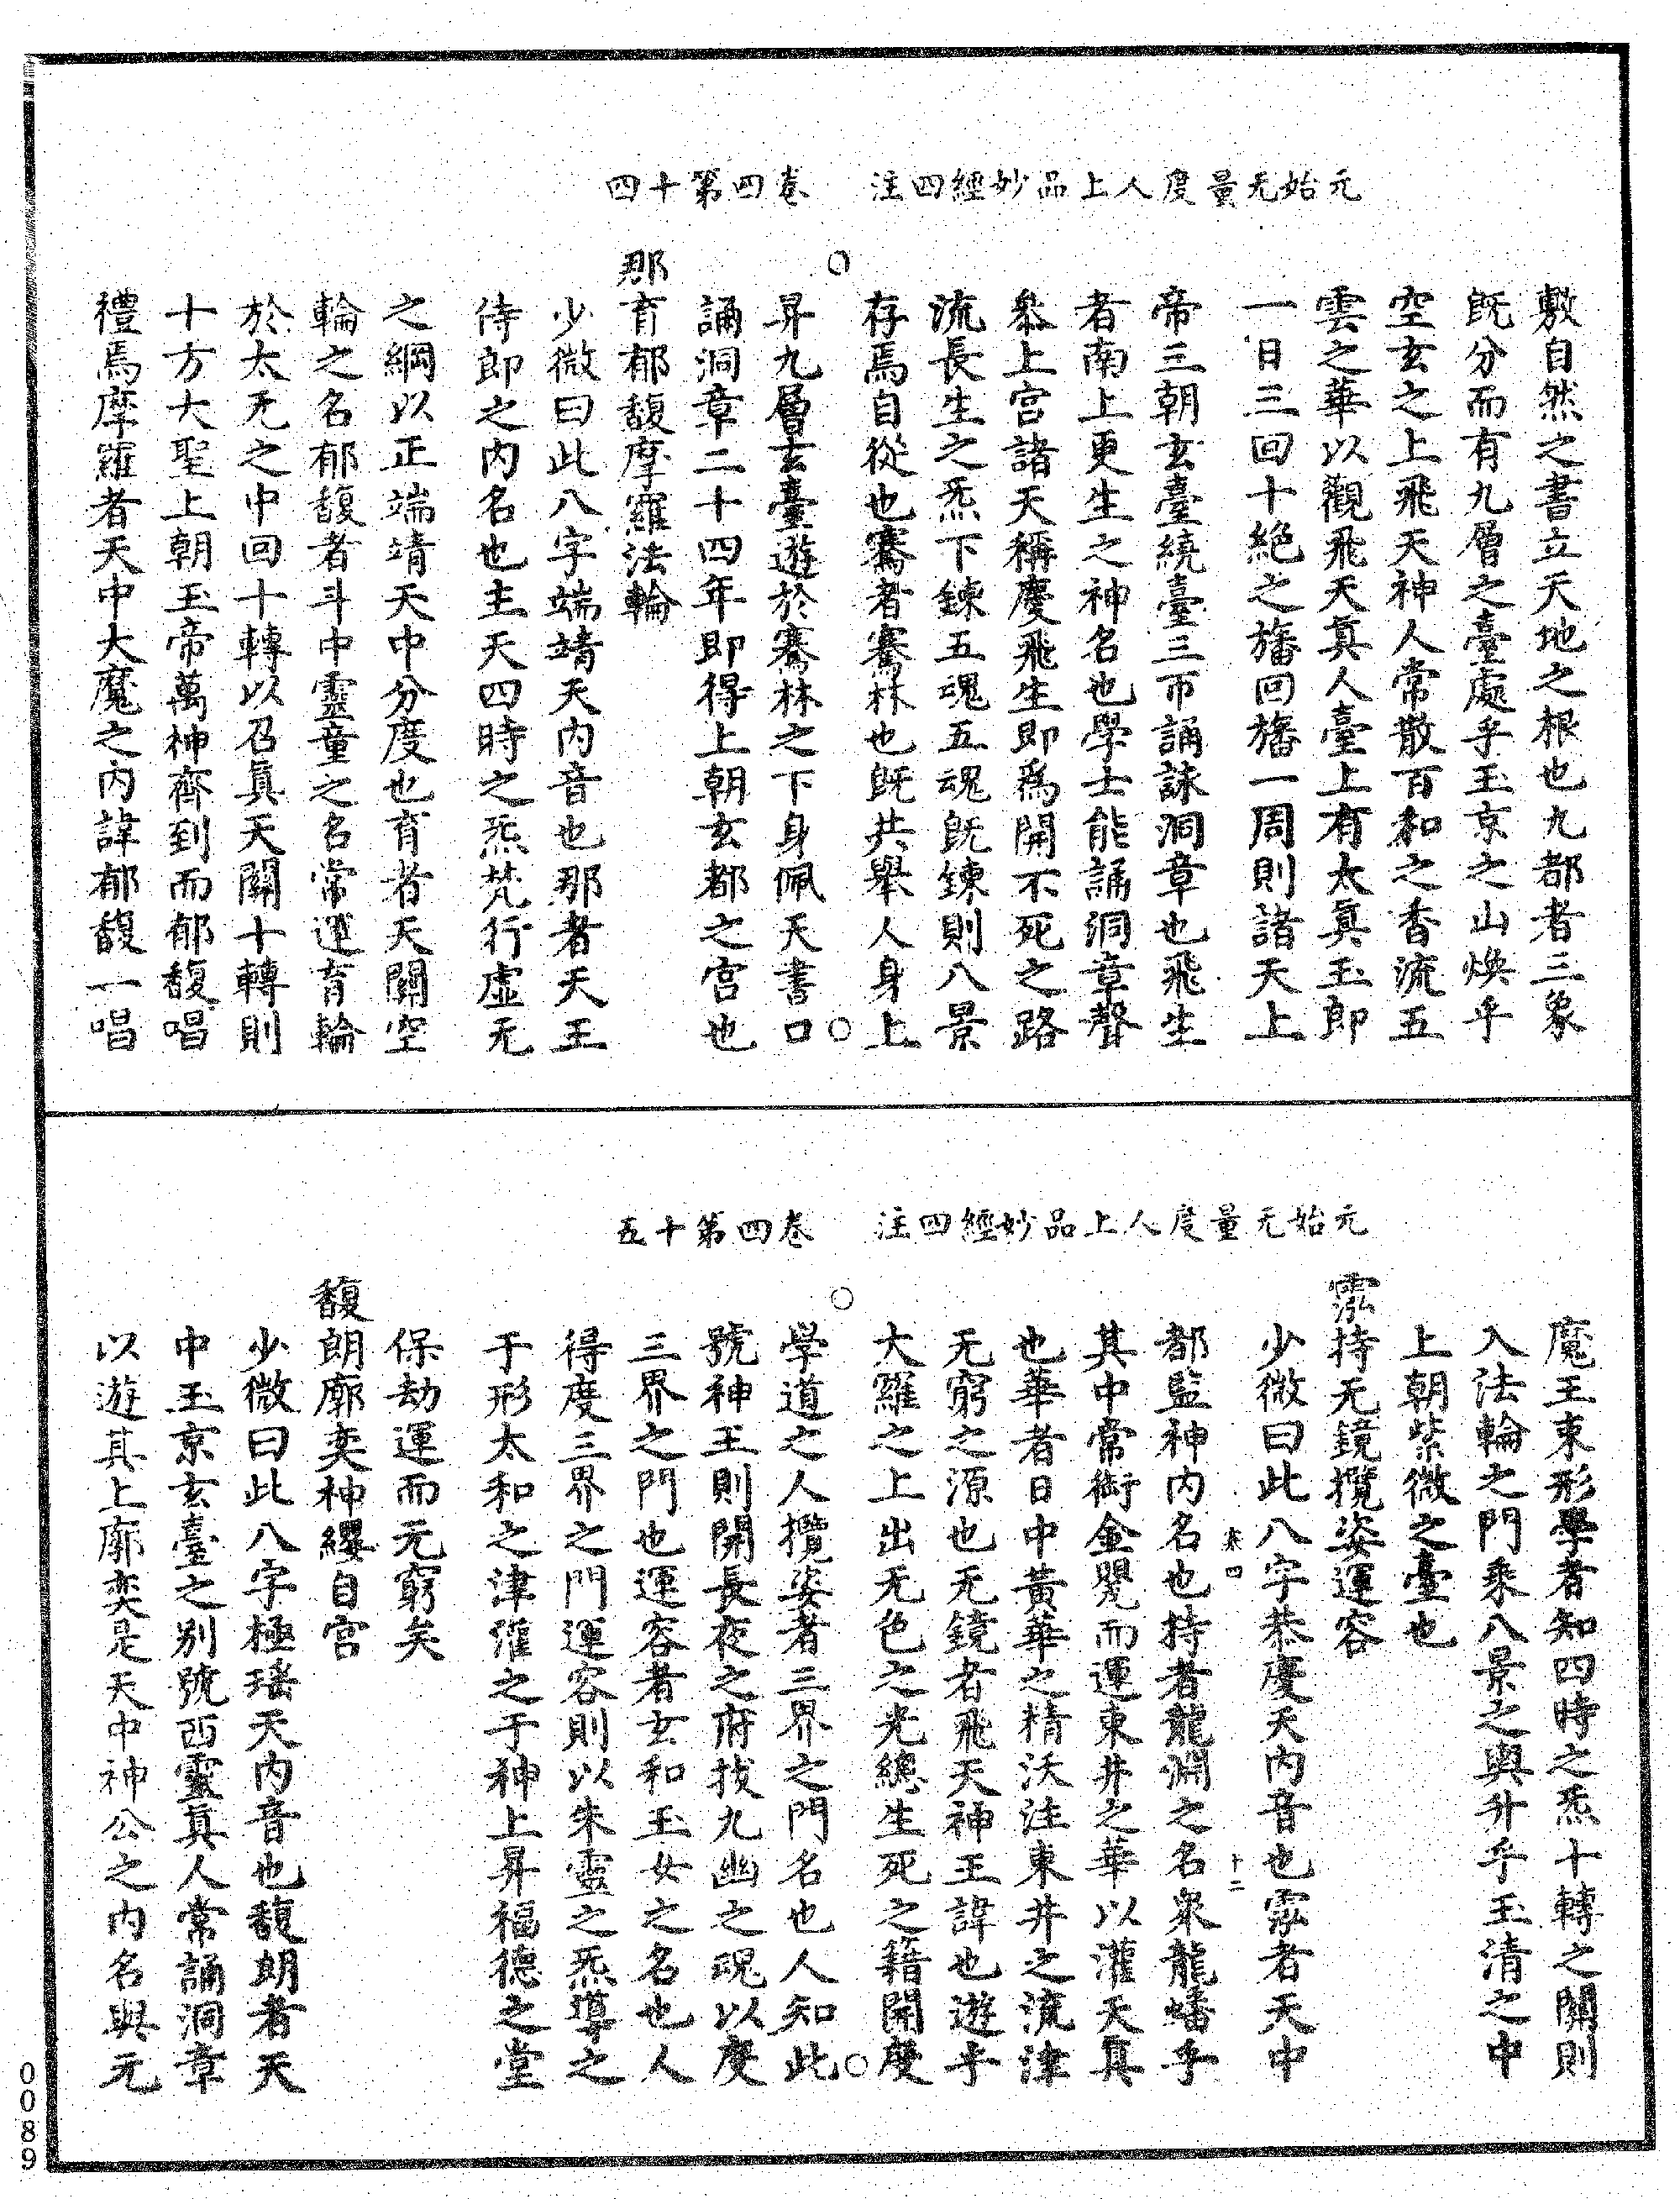 元始无量度人上品妙經四注　卷四第十四
敷自然之書立天地之根也九都者三象
既分而有九層之臺處乎玉京之山煥乎
空玄之上飛天神人常散百和之香流五
雲之華以觀飛天真人臺上有太真玉郎
一日三回十絶之旛回旛一周則諸天上
帝三朝玄臺繞臺三帀誦詠洞章也飛生
者南上更生之神名也學士能誦洞章聲
叅上宫諸天稱慶飛生即爲開不死之路
流長生之炁下鍊五魂五魂既鍊則八景
存焉自從也騫者騫林也既共舉人身上
昇九層玄臺遊於騫林之下身佩天書口
誦洞章二十四年即得上朝玄都之宫也
那育郁馥摩羅法輪
少微曰此八字端靖天内音也那者天王
侍郎之内名也主天四時之炁梵行虛无
之綱以正端靖天中分度也育者天關空
輪之名郁馥者斗中靈童之名常運育輪
於太无之中回十轉以召真天關十轉則
十方大聖上朝玉帝萬神齊到而郁馥唱
禮焉摩羅者天中大魔之内諱郁馥一唱
元始无量度人上品妙經四注　卷四第十五
魔王束形學者知四時之炁十轉之關則
入法輪之門乘八景之輿升乎玉清之中
上朝紫微之臺也
霐持无鏡攬姿運容
少微曰此八字恭慶天内音也霐者天中
都監神内名也持者龍淵之名衆龍蟠乎
其中常銜金甖而運東井之華以灌天真
也華者日中黃華之精沃注東井之流津
无窮之源也无鏡者飛天神王諱也遊乎
大羅之上出无色之光總生死之籍開度
學道之人攬姿者三界之門名也人知此
號神王則開長夜之府拔九幽之魂以度
三界之門也運容者玄和玉女之名也人
得度三界之門運容則以朱靈之炁導之
于形太和之津灌之于神上昇福德之堂
保劫運而元窮矣
馥朗廓奕神纓自宫
少微曰此八字極瑶天内音也馥朗者天
中玉京玄臺之别號西靈真人常誦洞章
以遊其上廓奕是天中神公之内名與元
0089